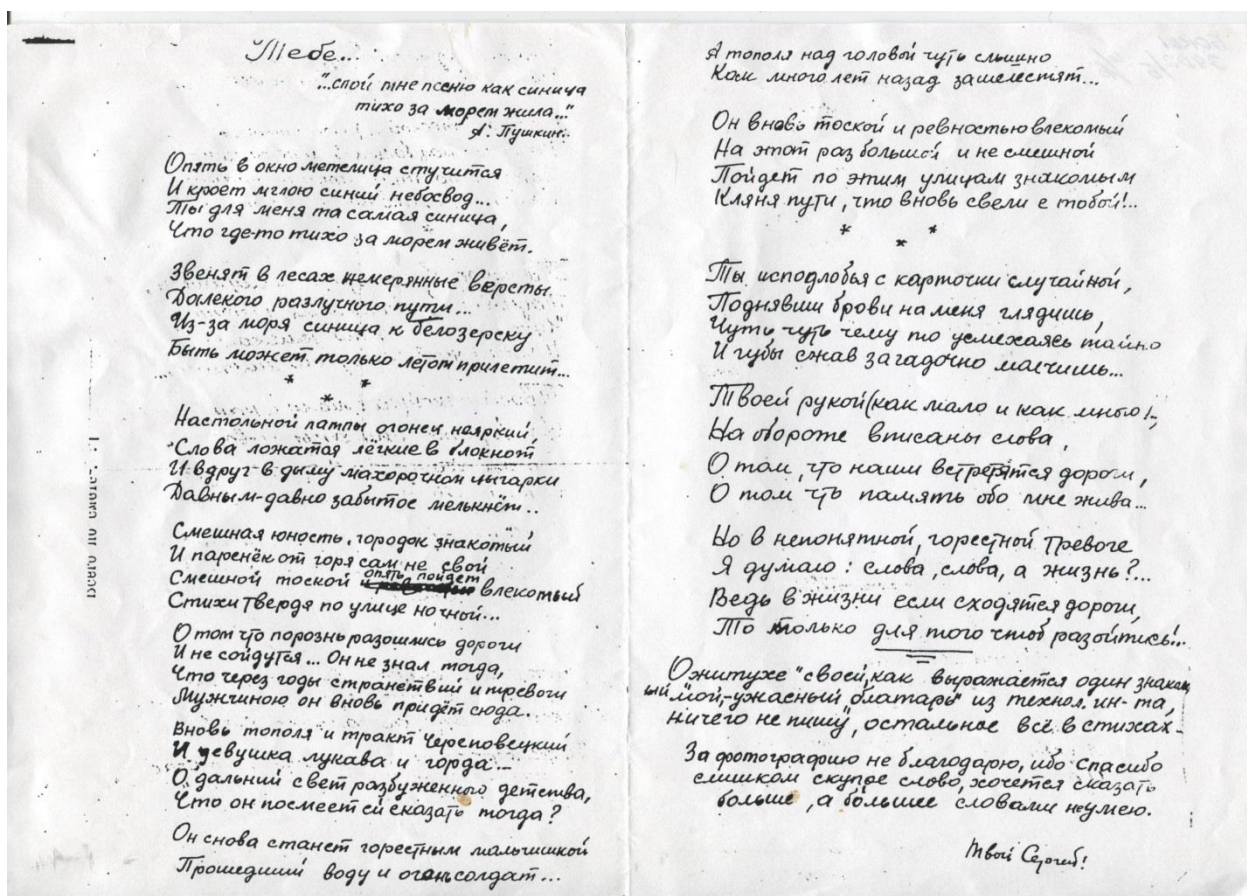 Тебе...
"...спой мне песню как синица
тихо за морем жила..."
А. Пушкин.
Опять в окно метелица стучится
И кроет мглою синий небосвод...
Ты для меня та самая синица,
Что где-то тихо за морем живёт.
Звенят в лесах немерянные версты
Далекого разлучного пути...
Из-за моря синица к Белозерску
Быть может только летом прилетит...
* * *
Настольной лампы огонек неяркий,
Слова ложатся лёгкие в блокнот
И вдруг в дыму махорочном цыгарки
Давным-давно забытое мелькнёт..
Смешная юность, городок знакомый
И паренёк от горя сам не свой
Смешной тоской опять пойдет влекомый
Стихи твердя по улице ночной...
О том что порознь разошлись дороги
И не сойдутся... Он не знал тогда,
Что через годы странствий и тревоги
Мужчиною он вновь придёт сюда.
Вновь тополя и тракт Череповецкий
И девушка лукава и горда...
О, дальний свет разбуженного детства,
Что он посмеет ей сказать тогда?
Он снова станет горестным мальчишкой
Прошедший воду и огонь солдат...
А тополя над головой чуть слышно
Как много лет назад зашелестят...
Он вновь тоской и ревностью влекомый
На этот раз большой и не смешной
Пойдет по этим улицам знакомым
Кляня пути, что вновь свели с тобой!..
* * *
Ты исподлобья с карточки случайной,
Поднявши брови на меня глядишь,
Чуть чуть чему то усмехаясь тайно
И губы сжав загадочно молчишь...
Твоей рукой (как мало и как много!..
На обороте вписаны слова,
О том, что наши встретятся дороги,
О том что память обо мне жива...
Но в непонятной, горестной тревоге
Я думаю: слова, слова, а жизнь?...
Ведь в жизни если сходятся дороги,
То только для того чтоб разойтись!..
О житухе "своей, как выражается один знаком
ый мой,-ужасный блатарь" из технол. ин-та,
ничего не пишу", остальное всё в стихах-
За фотографию не благодарю, ибо спасибо
слишком скупое слово, хочется сказать
больше, а большее словами не умею.
Твой Сергей!